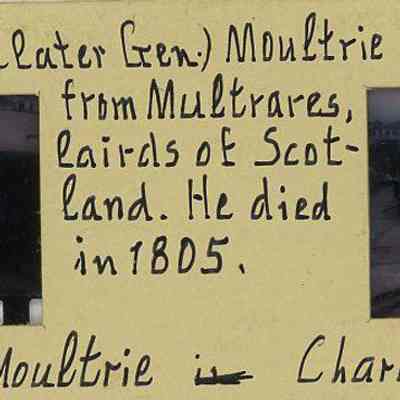 (later Gen.) Moultrie
from Multrares,
lairds of Scot-
land. He died
in 1805.
Moultrie in Char